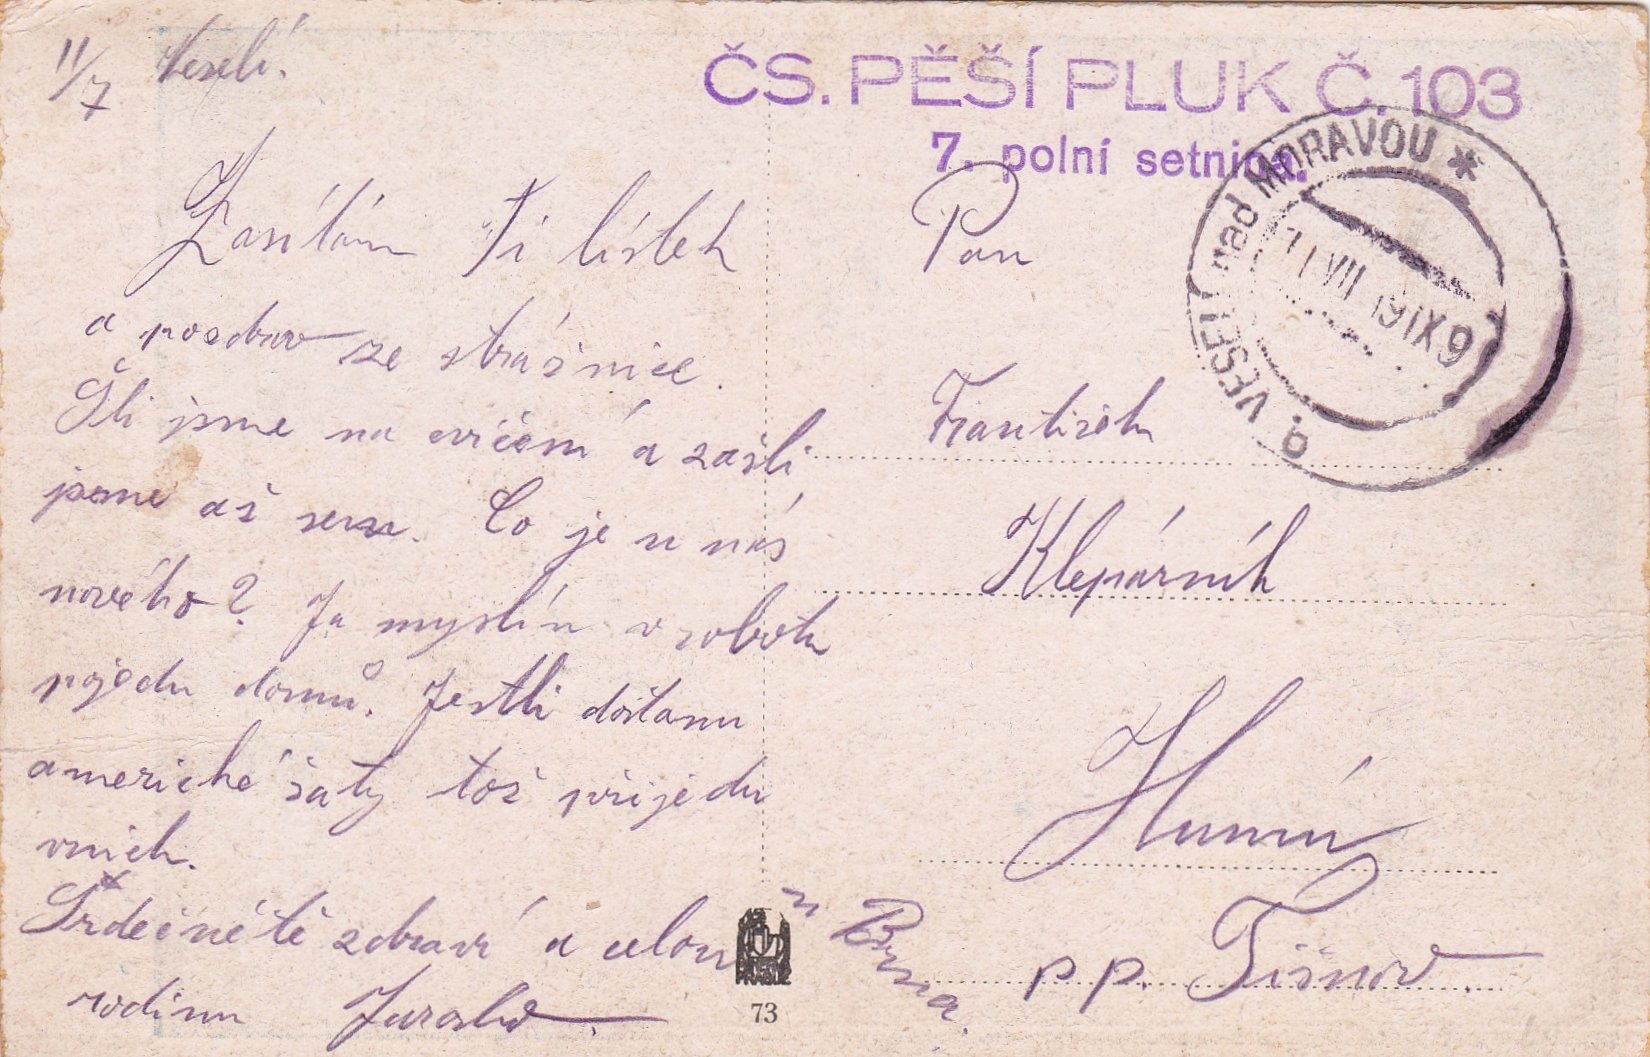 11/7 Veselí.
Zasílám Ti lístek
a pozdrav ze strážnice.
Šli jsme na cvičení a zašli
jsme až sem. Co je u nás
nového? Ja myslím v sobotu
pojedu domů. Jestli dostanu
americké šaty tož přijedu
vnich.
Srdečně tě zdraví a celou
rodinu Jaroslav.
ČS. PĚŠÍ PLUK Č. 103
7. polní setnina.
VESELÍ nad MORAVOU *
11 VII 19 IX 9
Pan
František
Klepárník
p.p. Tišnov
u Brna.
73